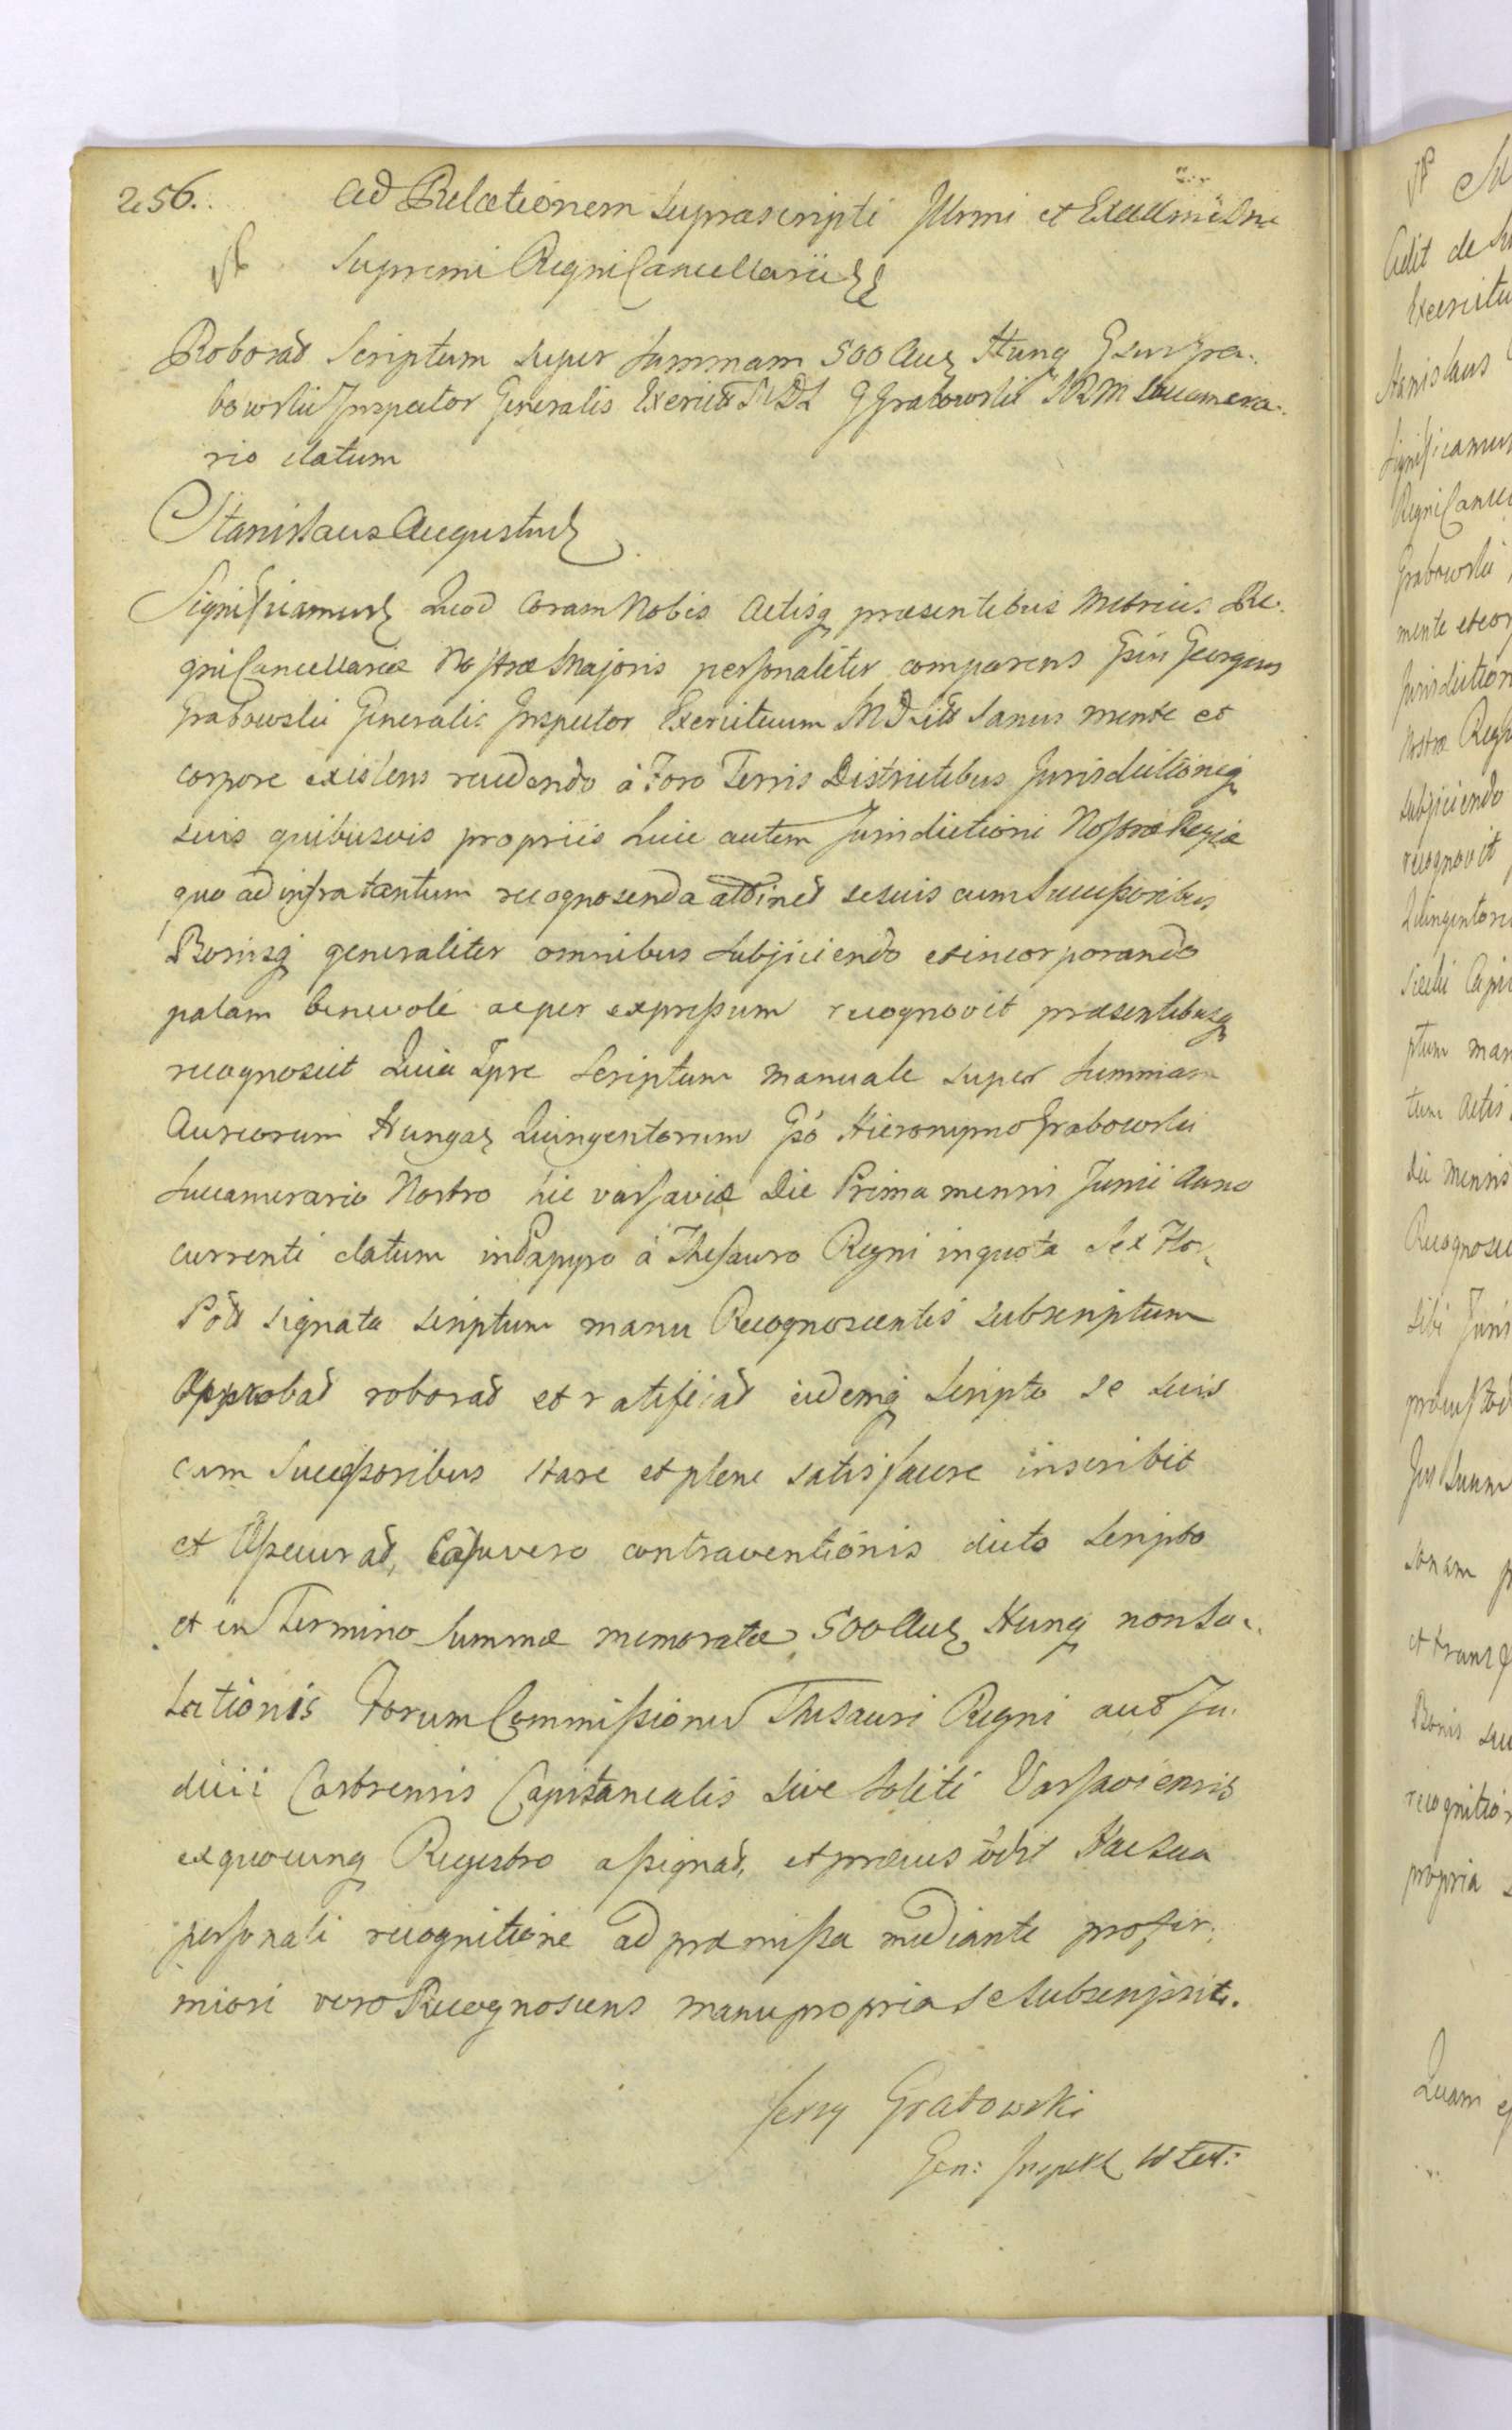 256.
Ad Relationem supra scripti Illrmi et Excellmi Dni
Supremi Regni Cancellarii
Roborat Scriptum super Summam 500 Aur Hung Gsus Gra:
bowski Inspector Generalis Exercit MDL G Grabowski SRM Succamera:
rio datum
Stanislaus Augustus
Significamus Quod Coram Nobis Actisq praesentibus Metrices Re:
gni Cancellariae Nostrae Majoris personaliter comparens Gsus Georgius
Grabowski Generalis Inspector Exercituum MD Litt Sanus mente et
corpore existens recedendo à Foro Terris Districtibus Jurisdictioneq
suis quibusvis propriis huic autem Jurisdictioni Nostrae Regiae
quo ad infra tantum recognoscenda attinet se suis cum Successoribus
Bonisq generaliter omnibus subjiciendo et incorporando
palam benevolè ac per expressum recognovit praesentibusq
recognoscit Quia Ipse Scriptum manuale super Summam
Aureorum Hungar Quingentorum Gso Hieronymo Grabowski
Succamerario Nostro hic varsaviae Die Prima mensis Junii Anno
currenti datum in Papyro à Thesauro Regni in quota Sex Flor
Pol signata scriptum manu Recognoscentis subscriptum
Approbat roborat et ratificat eidemq Scripto se suis
cum Successoribus stare et plene satisfacere inscribit
et Assecurat, Casu vero contraventionis dicto Scripto
et in Termino Summae memoratae 500 Aur Hung non So:
lutionis Forum Commissionis Thesauri Regni aut Ju:
dicii Castrensis Capitanealis sive Soliti Varsaviensis
ex quocunq Registro assignat, et praecustodit Hac sua
personali recognitione ad praemissa mediante pro fir:
miori vero Recognoscens manu propria se Subscripsit.
Jerzy Grabowski
Gen: Inspekt W Lit: